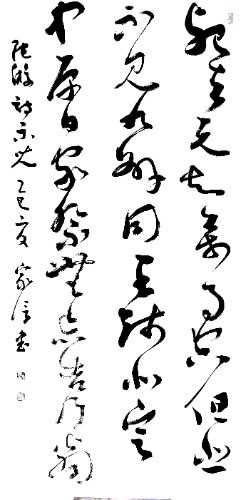 死去元知万事空但悲
不见九州同王师北定
中原日家祭无忘告乃翁
陆游诗示儿 乙巳夏 家信书